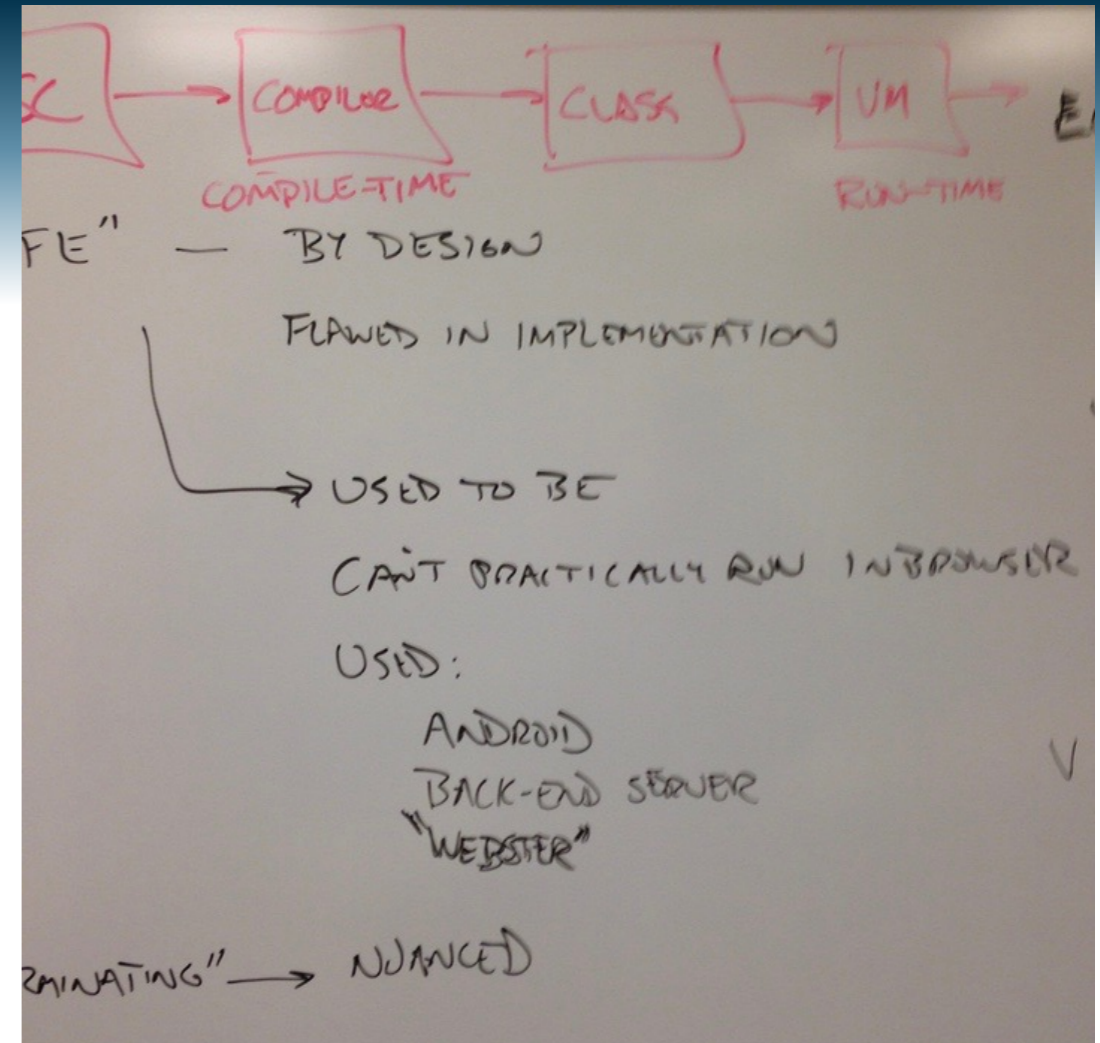 SC COMPILER CLASS VM
COMPILE-TIME RUN-TIME
FE" — BY DESIGN
FLAWED IN IMPLEMENTATION
USED TO BE
CAN'T PRACTICALLY RUN IN BROWSER
USED:
ANDROID
BACK-END SERVER
"WEBSTER"
RMINATING" NUANCED